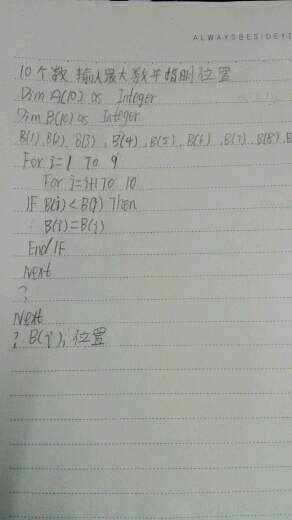 ALWAYSBESIDEYO
10个数 输入最大数并指明位置
Dim A(10) as Integer
Dim B(10) as Integer
B(1),B(2),B(3),B(4),B(5),B(6),B(7),B(8),B
For i=1 To 9
For j=i+1 To 10
IF B(i)<B(j) Then
B(i)=B(j)
End/IF
Next
?
Next
? B(i);位置